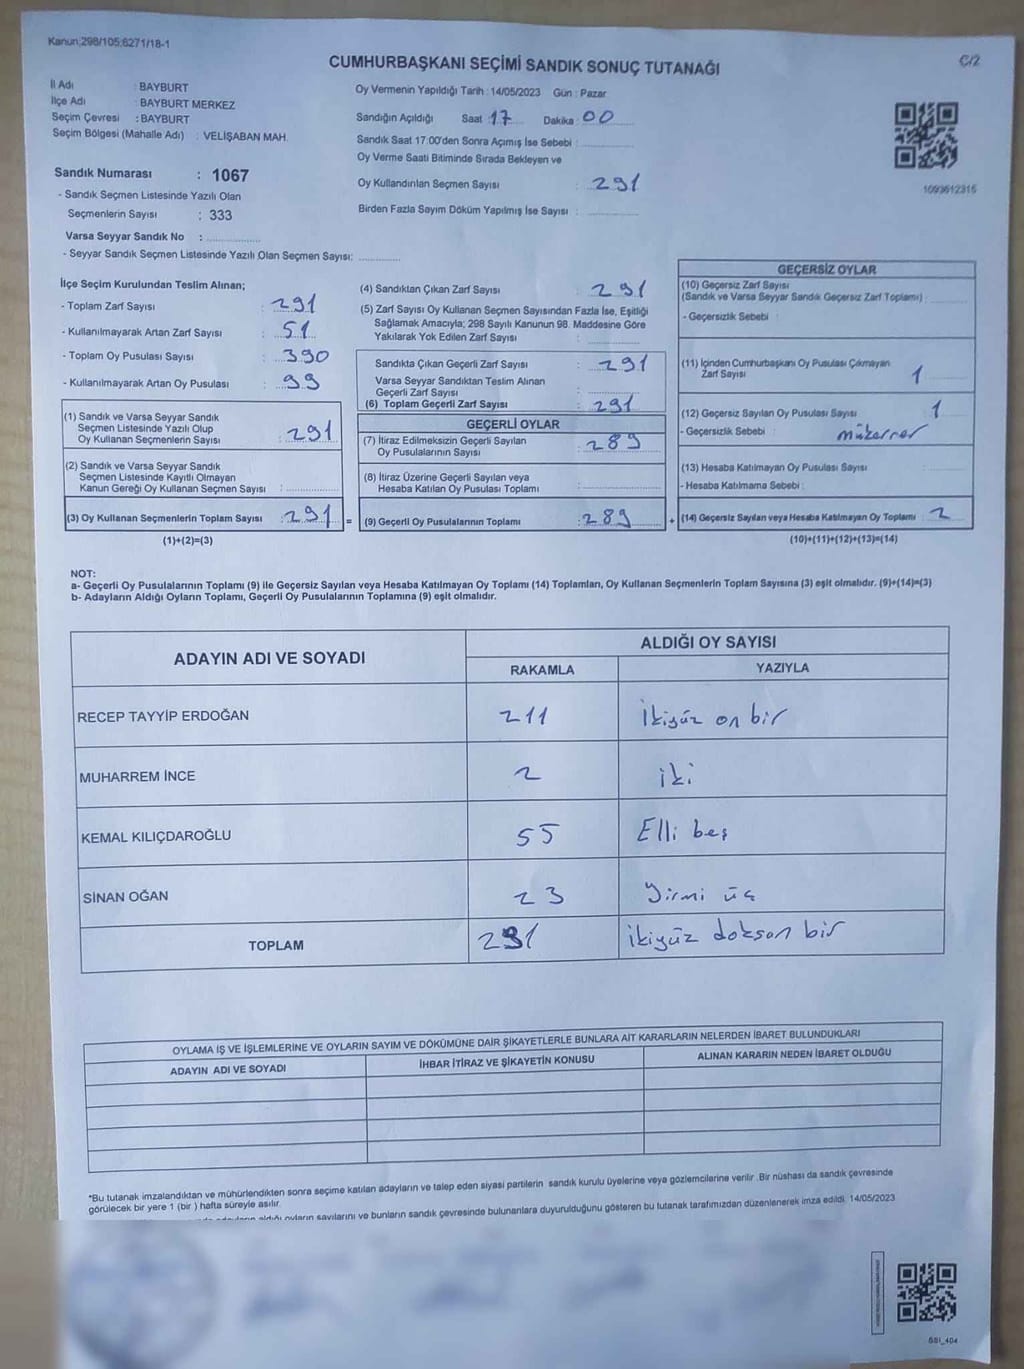 Kanun;298/105;6271/18-1
C/2
CUMHURBAŞKANI SEÇİMİ SANDIK SONUÇ TUTANAĞI
İl Adı : BAYBURT
İlçe Adı : BAYBURT MERKEZ
Seçim Çevresi : BAYBURT
Seçim Bölgesi (Mahalle Adı) : VELİŞABAN MAH.
Sandık Numarası : 1067
- Sandık Seçmen Listesinde Yazılı Olan
Seçmenlerin Sayısı : 333
Varsa Seyyar Sandık No :
- Seyyar Sandık Seçmen Listesinde Yazılı Olan Seçmen Sayısı:
Oy Vermenin Yapıldığı Tarih : 14/05/2023 Gün : Pazar
Sandığın Açıldığı Saat : 17 Dakika : 00
Sandık Saat 17:00'den Sonra Açımış İse Sebebi :
Oy Verme Saati Bitiminde Sırada Bekleyen ve
Oy Kullandırılan Seçmen Sayısı : 291
Birden Fazla Sayım Döküm Yapılmış İse Sayısı :
1093612315
İlçe Seçim Kurulundan Teslim Alınan;
- Toplam Zarf Sayısı : 291
- Kullanılmayarak Artan Zarf Sayısı : 51
- Toplam Oy Pusulası Sayısı : 390
- Kullanılmayarak Artan Oy Pusulası : 99
(1) Sandık ve Varsa Seyyar Sandık
Seçmen Listesinde Yazılı Olup
Oy Kullanan Seçmenlerin Sayısı : 291
(2) Sandık ve Varsa Seyyar Sandık
Seçmen Listesinde Kayıtlı Olmayan
Kanun Gereği Oy Kullanan Seçmen Sayısı :
(3) Oy Kullanan Seçmenlerin Toplam Sayısı : 291 =
(1)+(2)=(3)
(4) Sandıktan Çıkan Zarf Sayısı : 291
(5) Zarf Sayısı Oy Kullanan Seçmen Sayısından Fazla İse, Eşitliği
Sağlamak Amacıyla; 298 Sayılı Kanunun 98. Maddesine Göre
Yakılarak Yok Edilen Zarf Sayısı :
Sandıkta Çıkan Geçerli Zarf Sayısı : 291
Varsa Seyyar Sandıktan Teslim Alınan
Geçerli Zarf Sayısı :
(6) Toplam Geçerli Zarf Sayısı : 291
GEÇERLİ OYLAR
(7) İtiraz Edilmeksizin Geçerli Sayılan
Oy Pusulalarının Sayısı : 289
(8) İtiraz Üzerine Geçerli Sayılan veya
Hesaba Katılan Oy Pusulası Toplamı :
(9) Geçerli Oy Pusulalarının Toplamı : 289 +
GEÇERSİZ OYLAR
(10) Geçersiz Zarf Sayısı
(Sandık ve Varsa Seyyar Sandık Geçersiz Zarf Toplamı) :
- Geçersizlik Sebebi :
(11) İçinden Cumhurbaşkanı Oy Pusulası Çıkmayan
Zarf Sayısı : 1
(12) Geçersiz Sayılan Oy Pusulası Sayısı : 1
- Geçersizlik Sebebi : mükerrer
(13) Hesaba Katılmayan Oy Pusulası Sayısı :
- Hesaba Katılmama Sebebi :
(14) Geçersiz Sayılan veya Hesaba Katılmayan Oy Toplamı : 2
(10)+(11)+(12)+(13)=(14)
NOT:
a- Geçerli Oy Pusulalarının Toplamı (9) ile Geçersiz Sayılan veya Hesaba Katılmayan Oy Toplamı (14) Toplamları, Oy Kullanan Seçmenlerin Toplam Sayısına (3) eşit olmalıdır. (9)+(14)=(3)
b- Adayların Aldığı Oyların Toplamı, Geçerli Oy Pusulalarının Toplamına (9) eşit olmalıdır.
ADAYIN ADI VE SOYADI
ALDIĞI OY SAYISI
RAKAMLA YAZIYLA
RECEP TAYYİP ERDOĞAN 211 İkiyüz on bir
MUHARREM İNCE 2 iki
KEMAL KILIÇDAROĞLU 55 Elli beş
SİNAN OĞAN 23 Yirmi üç
TOPLAM 291 İkiyüz doksan bir
OYLAMA İŞ VE İŞLEMLERİNE VE OYLARIN SAYIM VE DÖKÜMÜNE DAİR ŞİKAYETLERLE BUNLARA AİT KARARLARIN NELERDEN İBARET BULUNDUKLARI
ADAYIN ADI VE SOYADI İHBAR İTİRAZ VE ŞİKAYETİN KONUSU ALINAN KARARIN NEDEN İBARET OLDUĞU
*Bu tutanak imzalandıktan ve mühürlendikten sonra seçime katılan adayların ve talep eden siyasi partilerin sandık kurulu üyelerine veya gözlemcilerine verilir .Bir nüshası da sandık çevresinde
görülecek bir yere 1 (bir ) hafta süreyle asılır.
adayların aldığı oyların sayılarını ve bunların sandık çevresinde bulunanlara duyurulduğunu gösteren bu tutanak tarafımızdan düzenlenerek imza edildi. 14/05/2023
SSI_404